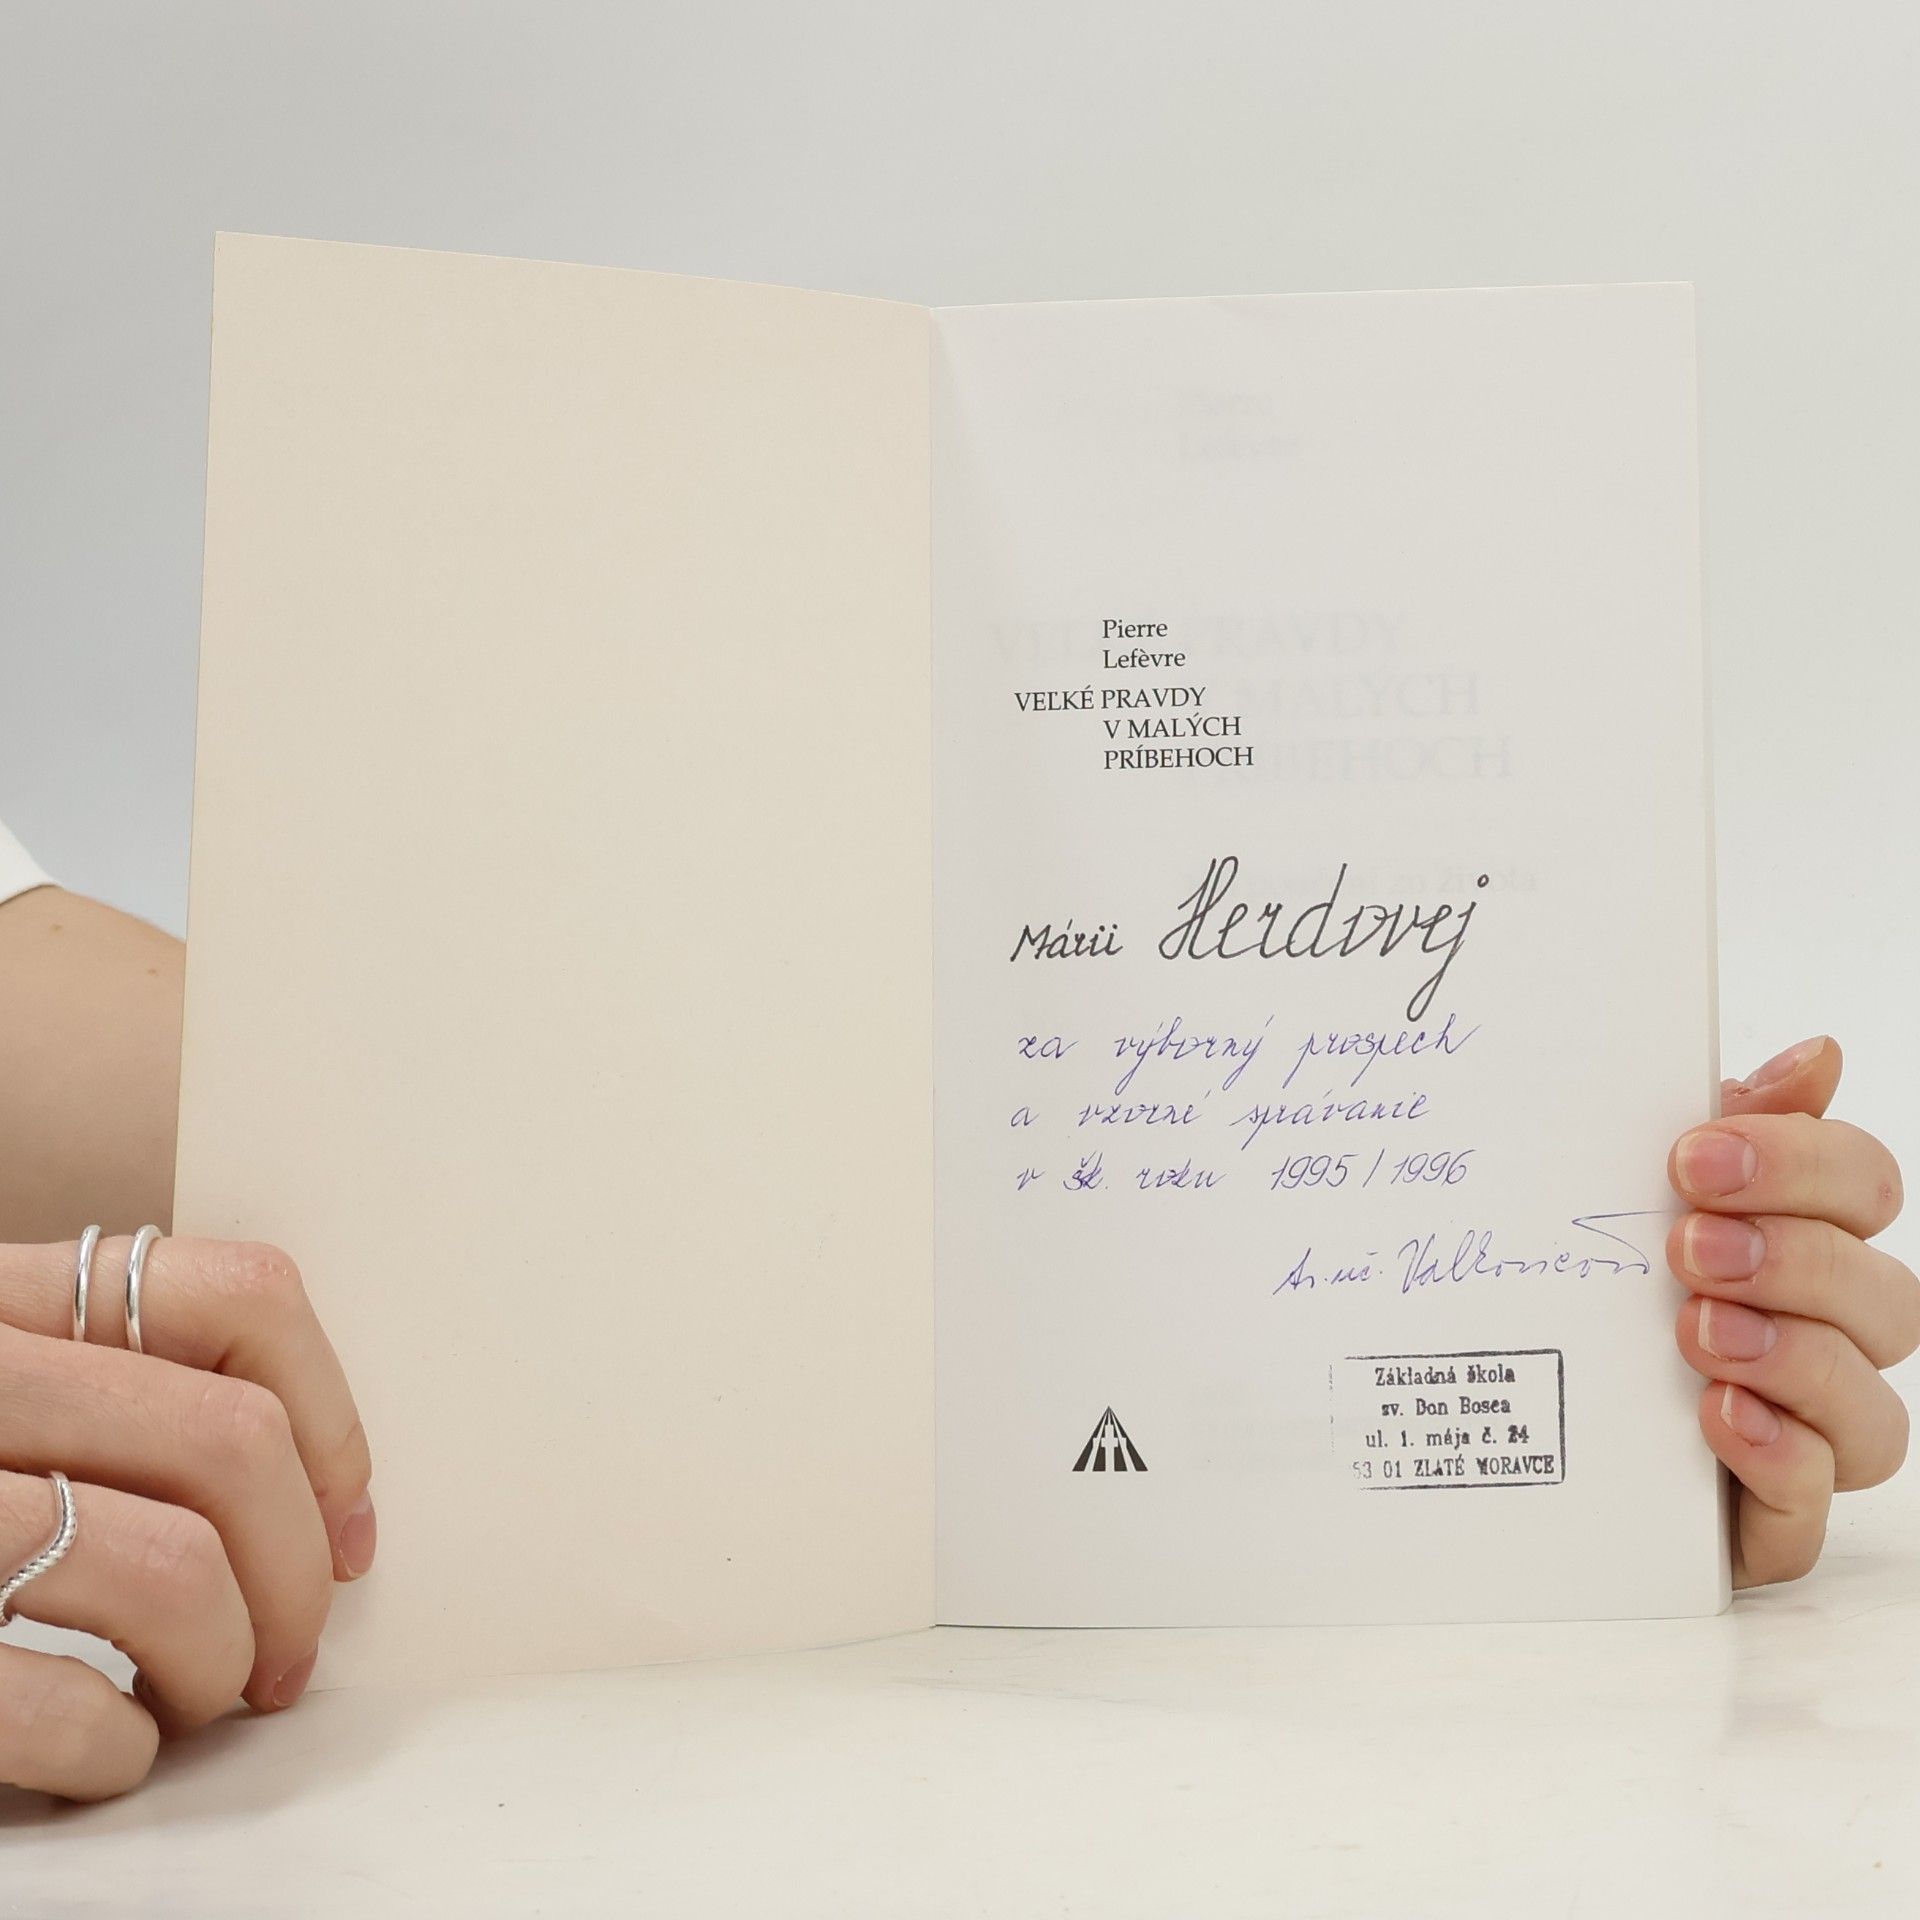 Pierre
Lefèvre
VEĽKÉ PRAVDY
V MALÝCH
PRÍBEHOCH
Márii Herdovej
za výborný prospech
a vzorné správanie
v šk. roku 1995/1996
tr. uč. Valkovicová
Základná škola
sv. Don Bosca
ul. 1. mája č.
53 01 ZLATÉ MORAVCE